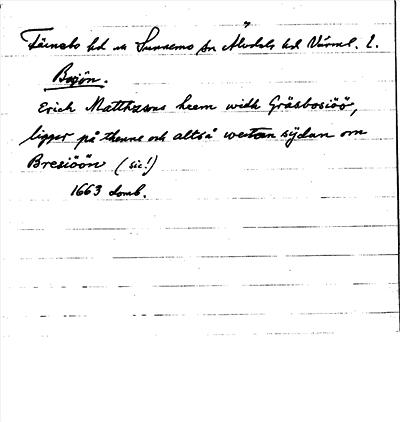 Färnebo hd o Sunnemo sn Älvdals hd Värml. l.
Bosjön.
Erich Matthzsons heem widh Gräsbosiöö,
ligger på thenne och altså westan sijdan om
Bresiöön (sic!)
1663 domb.